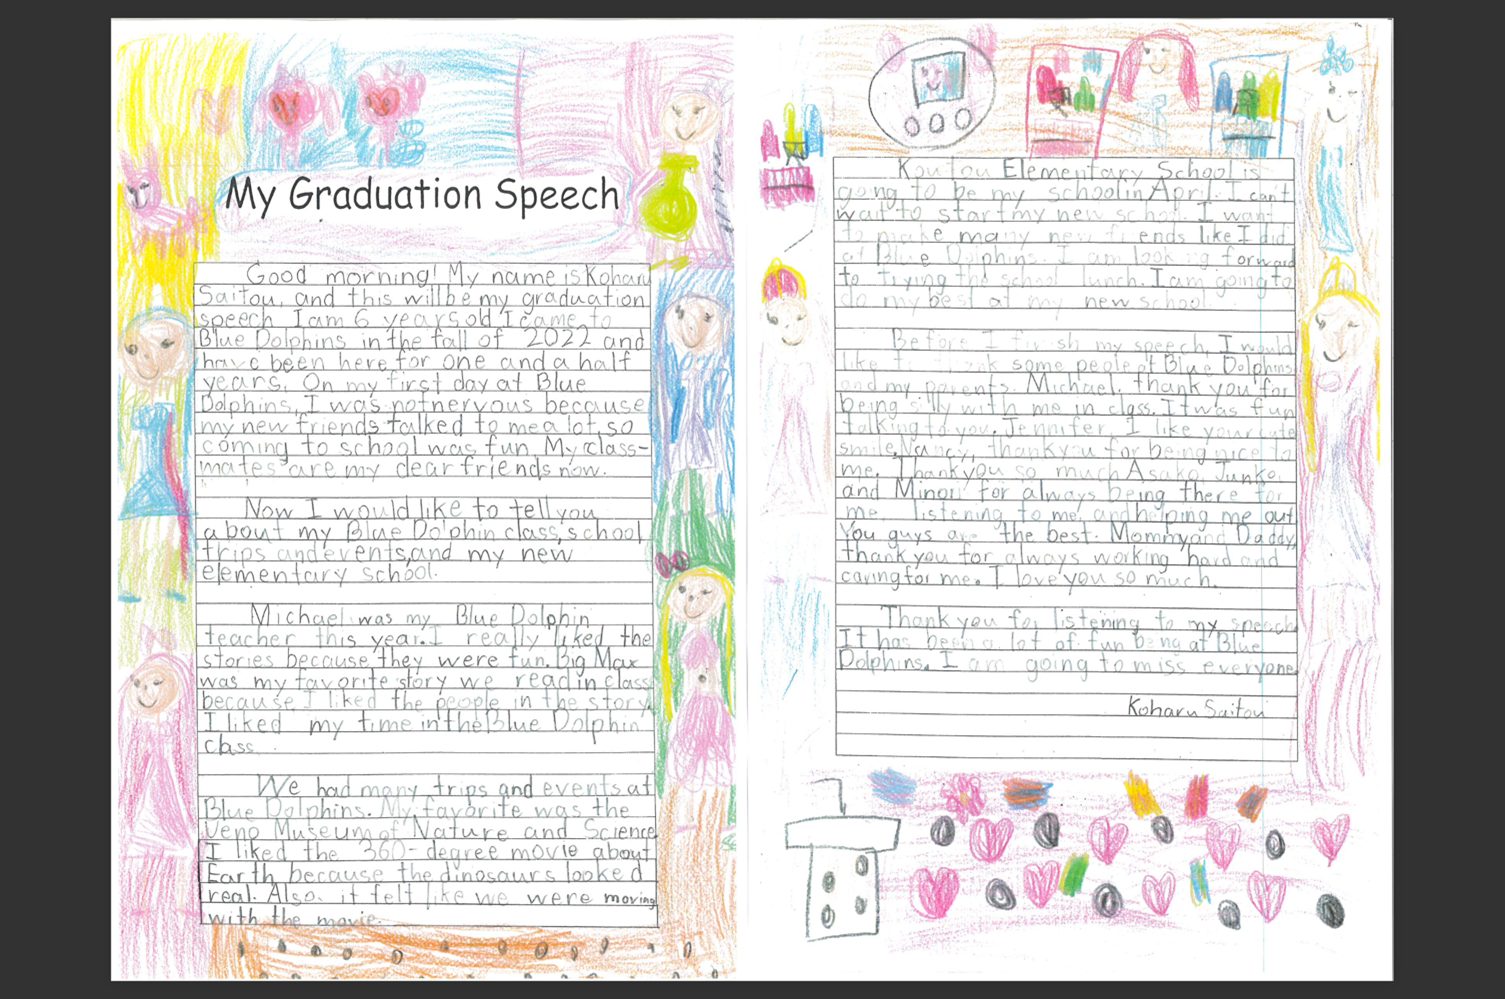 My Graduation Speech
Good morning! My name is Koharu
Saitou, and this will be my graduation
speech. I am 6 years old. I came to
Blue Dolphins in the fall of 2022 and
have been here for one and a half
years. On my first day at Blue
Dolphins, I was not nervous because
my new friends talked to me a lot, so
coming to school was fun. My class-
mates are my dear friends now.
Now I would like to tell you
about my Blue Dolphin class, school
trips and events, and my new
elementary school.
Michael was my Blue Dolphin
teacher this year. I really liked the
stories because they were fun. Big Max
was my favorite story we read in class
because I liked the people in the story.
I liked my time in the Blue Dolphin
class.
We had many trips and events at
Blue Dolphins. My favorite was the
Ueno Museum of Nature and Science.
I liked the 360-degree movie about
Earth because the dinosaurs looked
real. Also, it felt like we were moving
with the movie.
Koutou Elementary School is
going to be my school in April. I can't
wait to start my new school. I want
to make many new friends like I did
at Blue Dolphins. I am looking forward
to trying the school lunch. I am going to
do my best at my new school.
Before I finish my speech, I would
like to thank some people at Blue Dolphins
and my parents. Michael, thank you for
being silly with me in class. It was fun
talking to you. Jennifer, I like your cute
smile. Nancy, thank you for being nice to
me. Thank you so much Asako, Junko,
and Minori for always being there for
me, listening to me, and helping me out.
You guys are the best. Mommy and Daddy,
thank you for always working hard and
caring for me. I love you so much.
Thank you for listening to my speech.
It has been a lot of fun being at Blue
Dolphins. I am going to miss everyone.
Koharu Saitou